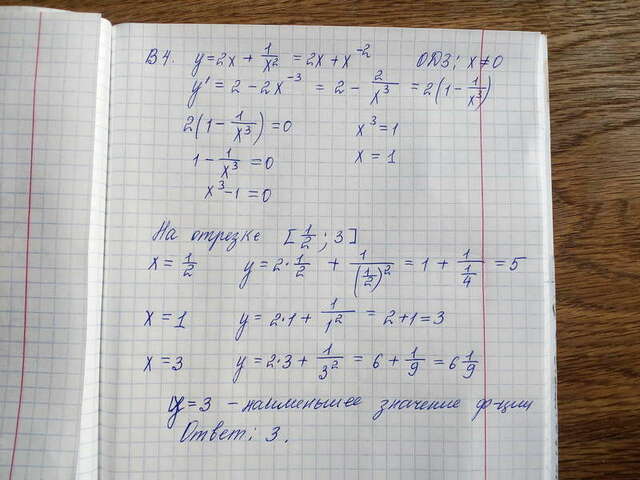 В4. y=2x + 1/x² = 2x + x⁻² ОДЗ: x≠0
y' = 2 - 2x⁻³ = 2 - 2/x³ = 2(1 - 1/x³)
2(1 - 1/x³) = 0 x³=1
1 - 1/x³ = 0 x = 1
x³-1 = 0
На отрезке [1/2; 3]
x = 1/2 y = 2·1/2 + 1/(1/2)² = 1 + 1/(1/4) = 5
x = 1 y = 2·1 + 1/1² = 2+1 = 3
x = 3 y = 2·3 + 1/3² = 6 + 1/9 = 6 1/9
y=3 - наименьшее значение ф-ции
Ответ: 3.